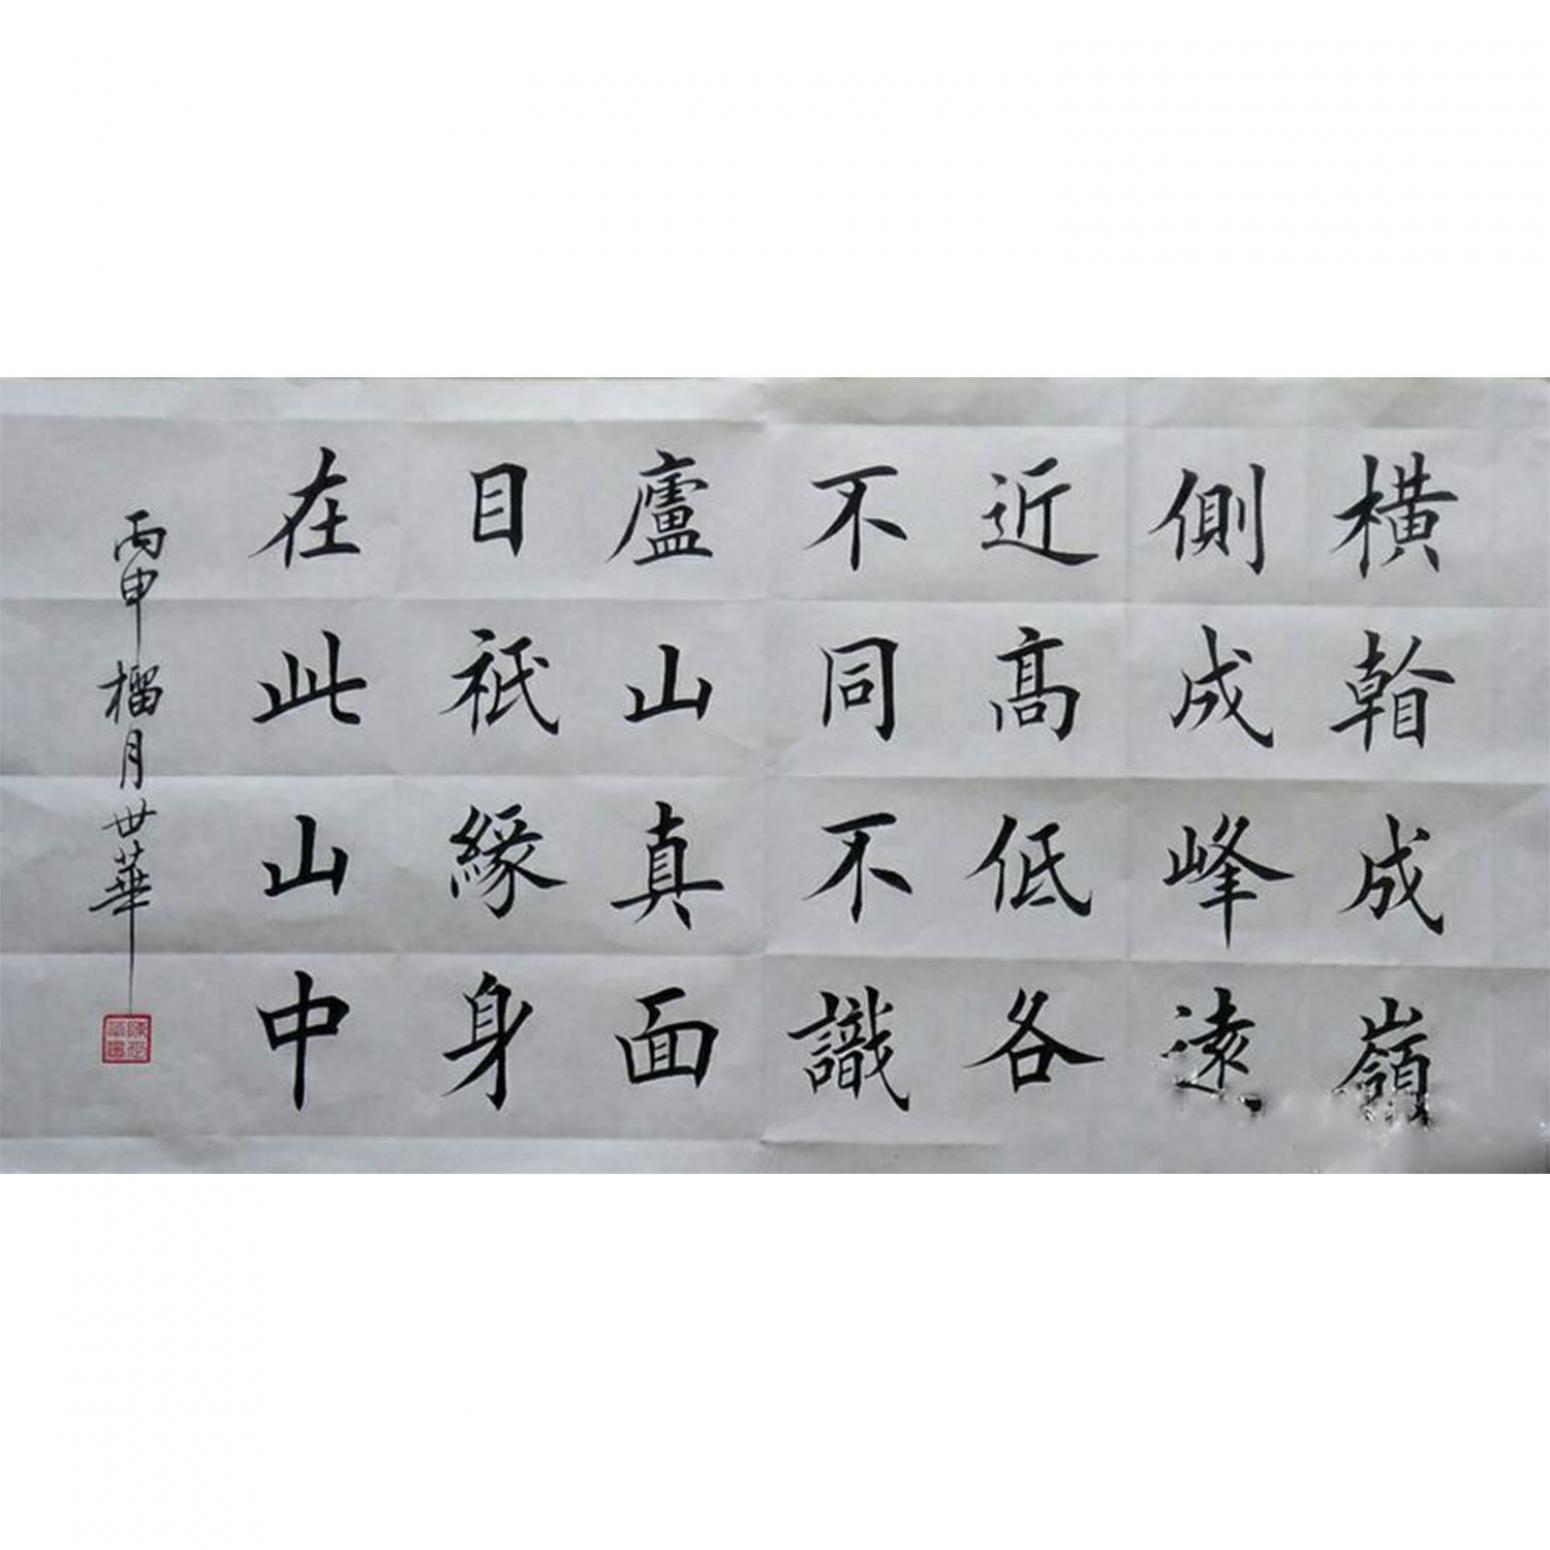 横看成嶺
側成峰遠
近髙低各
不同不識
廬山真面
目祇緣身
在此山中
丙申榴月世華